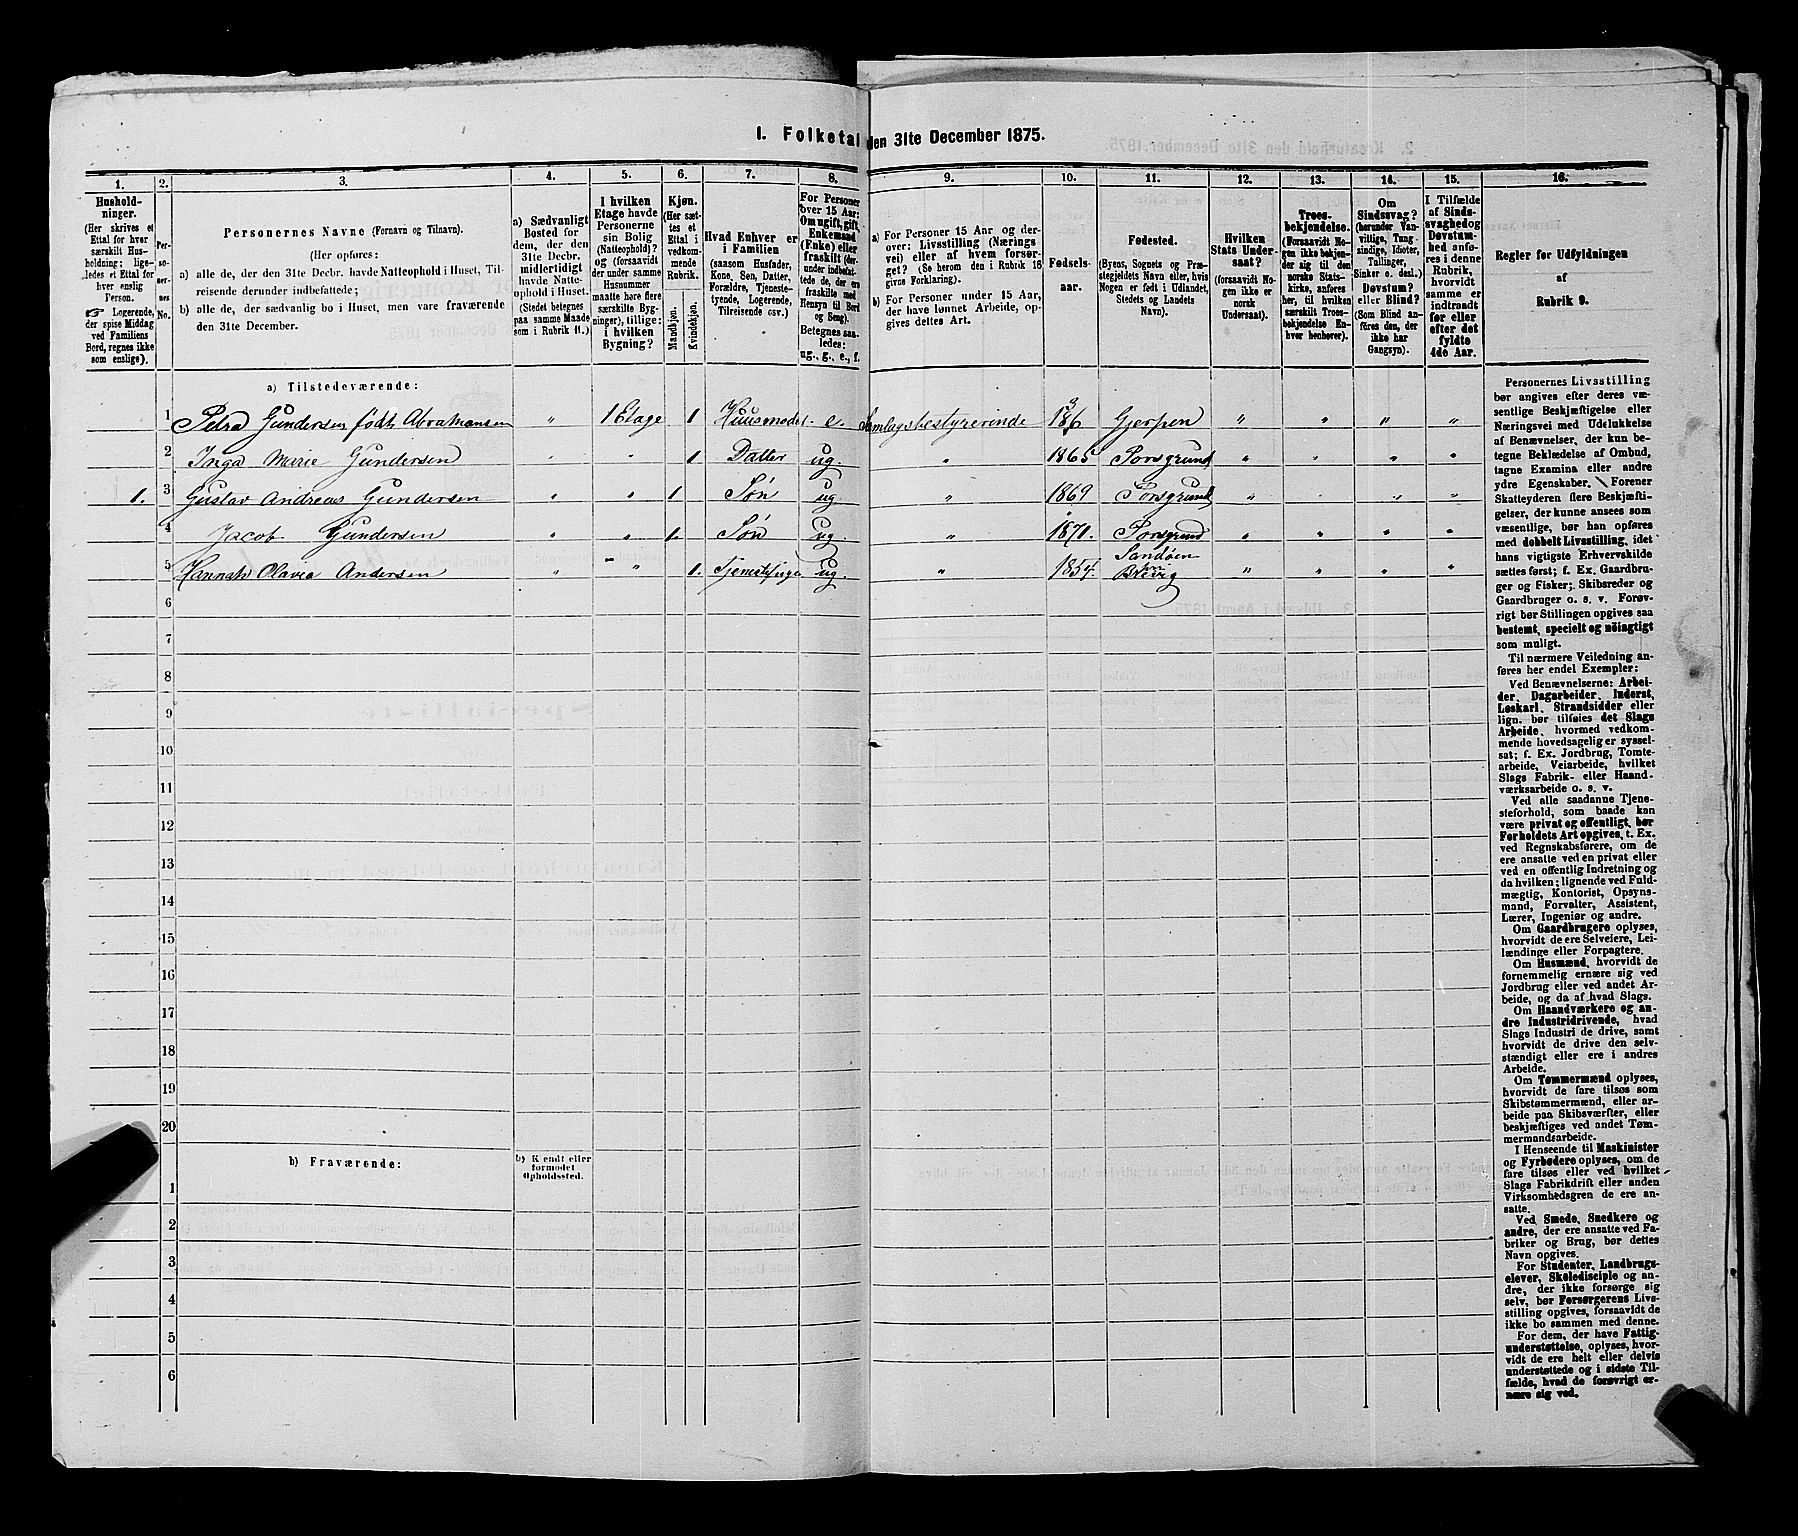 I. Folketal den 31te December 1875.
1. 2. 3. 4. 5. 6. 7. 8. 9. 10. 11. 12. 13. 14. 15. 16.
Hushold-
ninger.
(Her skrives et
Ettal for hver
særskilt Hus-
holdning; lige-
ledes et Ettal for
hver enslig
Person.
☞ Logerende,
der spise Middag
ved Familiens
Bord, regnes ikke
som enslige).
Per-
so-
ner-
nes
No.
Personernes Navne (Fornavn og Tilnavn).
(Her opføres:
a) alle de, der den 31te Decbr. havde Natteophold i Huset, Til-
reisende derunder indbefattede;
b) alle de, der sædvanlig bo i Huset, men vare fraværende
den 31te December.
a) Sædvanligt
Bosted for
dem, der den
31te Decbr.
midlertidigt
havde Natte-
ophold i Huset.
(Stedet betegnes
paa samme Maade
som i Rubrik 11.)
I hvilken
Etage havde
Personerne
sin Bolig
(Natteophold)?
og (forsaavidt
der under samme
Husnummer
maatte høre flere
særskilte Byg-
ninger), tillige:
i hvilken
Bygning?
Kjøn.
(Her sæt-
tes et
Ettal i
vedkom-
mende
Rubrik.
Mandkjøn.
Kvindekjøn.
Hvad Enhver er
i Familien
(saasom Husfader,
Kone, Søn, Datter,
Forældre, Tjeneste-
tyende, Logerende,
Tilreisende osv.)
For Personer
over 15 Aar:
Om ugift, gift,
Enkemand
(Enke) eller
fraskilt (der-
under indbefat-
tede de, der ere
fraskilte med
Hensyn til Bord
og Seng).
Betegnes saa-
ledes:
ug., g., e., f.
a) For Personer 15 Aar og der-
over: Livsstilling (Nærings
vei) eller af hvem forsør-
get? (Se herom den i Rubrik 16
givne Forklaring).
b) For Personer under 15 Aar,
der have lønnet Arbeide, op-
gives dettes Art.
Fødsels-
aar.
Fødested.
(Byens, Sognets og Præ-
stegjeldets Navn eller, hvis
Nogen er født i Udlandet,
Stedets og Landets
Navn).
Hvilken
Stats Under-
saat?
(forsaavidt No-
gen ikke er
norsk
Undersaat).
Troes-
bekjendelse.
(Forsaavidt No-
gen ikke bekjen-
der sig til den
norske Stats-
kirke, anføres
her, til hvilken
særskilt Troes-
bekjendelse En-
hver henhører).
Om
Sindssvag?
(herunder Van-
vittige, Tung-
sindige, Idioter,
Tullinger,
Sinker o. desl.)
Døvstum?
eller Blind?
(Som Blind an-
føres den, der
ikke har
Gangsyn).
I Tilfælde
af Sinds-
svaghed og
Døvstum-
hed anfø-
res i denne
Rubrik,
hvorvidt
samme er
indtraadt
før eller
efter det
fyldte
4de Aar.
Regler for Udfyldningen
af
Rubrik 9.
a) Tilstedeværende:
1 Petra Gundersen født Abrahamsen " 1 Etage 1 Huusmoder. e. Samlagsbestyrerinde Gjerpen " " " "
2 Inga Marie Gundersen " " 1 Datter ug. " 1865 Porsgrund " " " "
1. 3 Gustav Andreas Gundersen " " 1 Søn ug. " 1869 Porsgrund " " " "
4 Jacob Gundersen " " 1. Søn ug. " 1871. Porsgrund " " " "
5 Hannah Olavia Andersen " " 1. Tjenestepige ug. " 1854. Sandøen Brevig " " " "
6
7
8
9
10
11
12
13
14
15
16
17
18
19
20
b) Fraværende:
b) Kjendt eller
formodet
Opholdssted.
1
2
3
4
5
6
Personernes Livsstilling
bør angives efter deres væ-
sentlige Beskjæftigelse eller
Næringsvei med Udelukkelse
af Benævnelser, der kun be-
tegne Beklædelse af Ombud,
tagne Examina eller andre
ydre Egenskaber. Forener
Skatteyderen flere Beskjæfti-
gelser, der kunne ansees som
væsentlige, bør han opføres
med dobbelt Livsstilling, idet
hans vigtigste Erhvervskilde
sættes først; f. Ex. Gaardbru-
ger og Fisker; Skibsreder og
Gaardbruger o. s. v. Forøv-
rigt bør Stillingen opgives saa
bestemt, specielt og nøiagtigt
som muligt.
Til nærmere Veiledning an-
føres her endel Exempler:
Ved Benævnelserne: Arbei-
der, Dagarbeider, Inderst,
Løskarl, Strandsidder eller
lign. bør tilføies det Slags
Arbeide, hvormed vedkom-
mende hovedsagelig er syssel-
sat; f. Ex. Jordbrug, Tomte-
arbeide, Veiarbeide, hvilket
Slags Fabrik- eller Haand-
værksarbeide o. s. v.
Ved alle saadanne Tjene-
steforhold, som baade kan
være privat og offentligt, bør
Forholdets Art opgives, t. Ex.
ved Regnskabsførere, om de
ere ansatte ved en privat eller
ved en offentlig Indretning og
da hvilken; lignende ved Fuld-
mægtig, Kontorist, Opsyns-
mand, Forvalter, Assistent,
Lærer, Ingeniør og andre.
Om Gaardbrugere oplyses,
hvorvidt de ere Selveiere, Lei-
lændinge eller Forpagtere.
Om Husmænd, hvorvidt de
fornemmelig ernære sig ved
Jordbrug eller ved andet Ar-
beide, og da af hvad Slags.
Om Haandværkere og an-
dre Industridrivende, hvad
Slags Industri de drive, samt
hvorvidt de drive den selv-
stændigt eller ere i andres
Arbeide.
Om Tømmermænd oplyses,
hvorvidt de fare tilsøs som
Skibstømmermænd, eller ar-
beide paa Skibsværfter, eller
beskjæftiges ved andet Tøm-
mermandsarbeide.
I Henseende til Maskinister
og Fyrbødere oplyses, om de
fare tilsøs eller ved hvilket
Slags Fabrikdrift eller anden
Virksomhedsgren de ere an-
satte.
Ved Smede, Snedkere og
andre, der ere ansatte ved Fa-
briker og Brug, bør dettes
Navn opgives.
For Studenter, Landbrugs-
elever, Skoledisciple og an-
dre, der ikke forsørge sig
selv, bør Forsørgerens Livs-
stilling opgives, forsaavidt de
ikke bo sammen med denne.
For dem, der have Fattig-
understøttelse, oplyses, hvor-
vidt de ere helt eller delvis
understøttede og i sidste Til-
fælde, hvad de forøvrigt er-
nære sig ved.